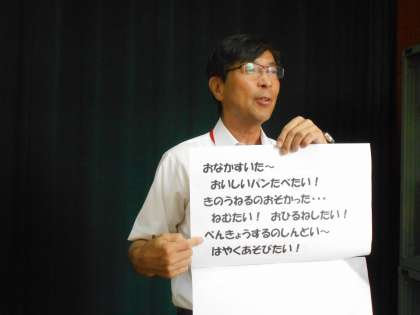 おなかすいた～
おいしいパンたべたい！
きのうねるのおそかった・・・
ねむたい！ おひるねしたい！
べんきょうするのしんどい～
はやくあそびたい！